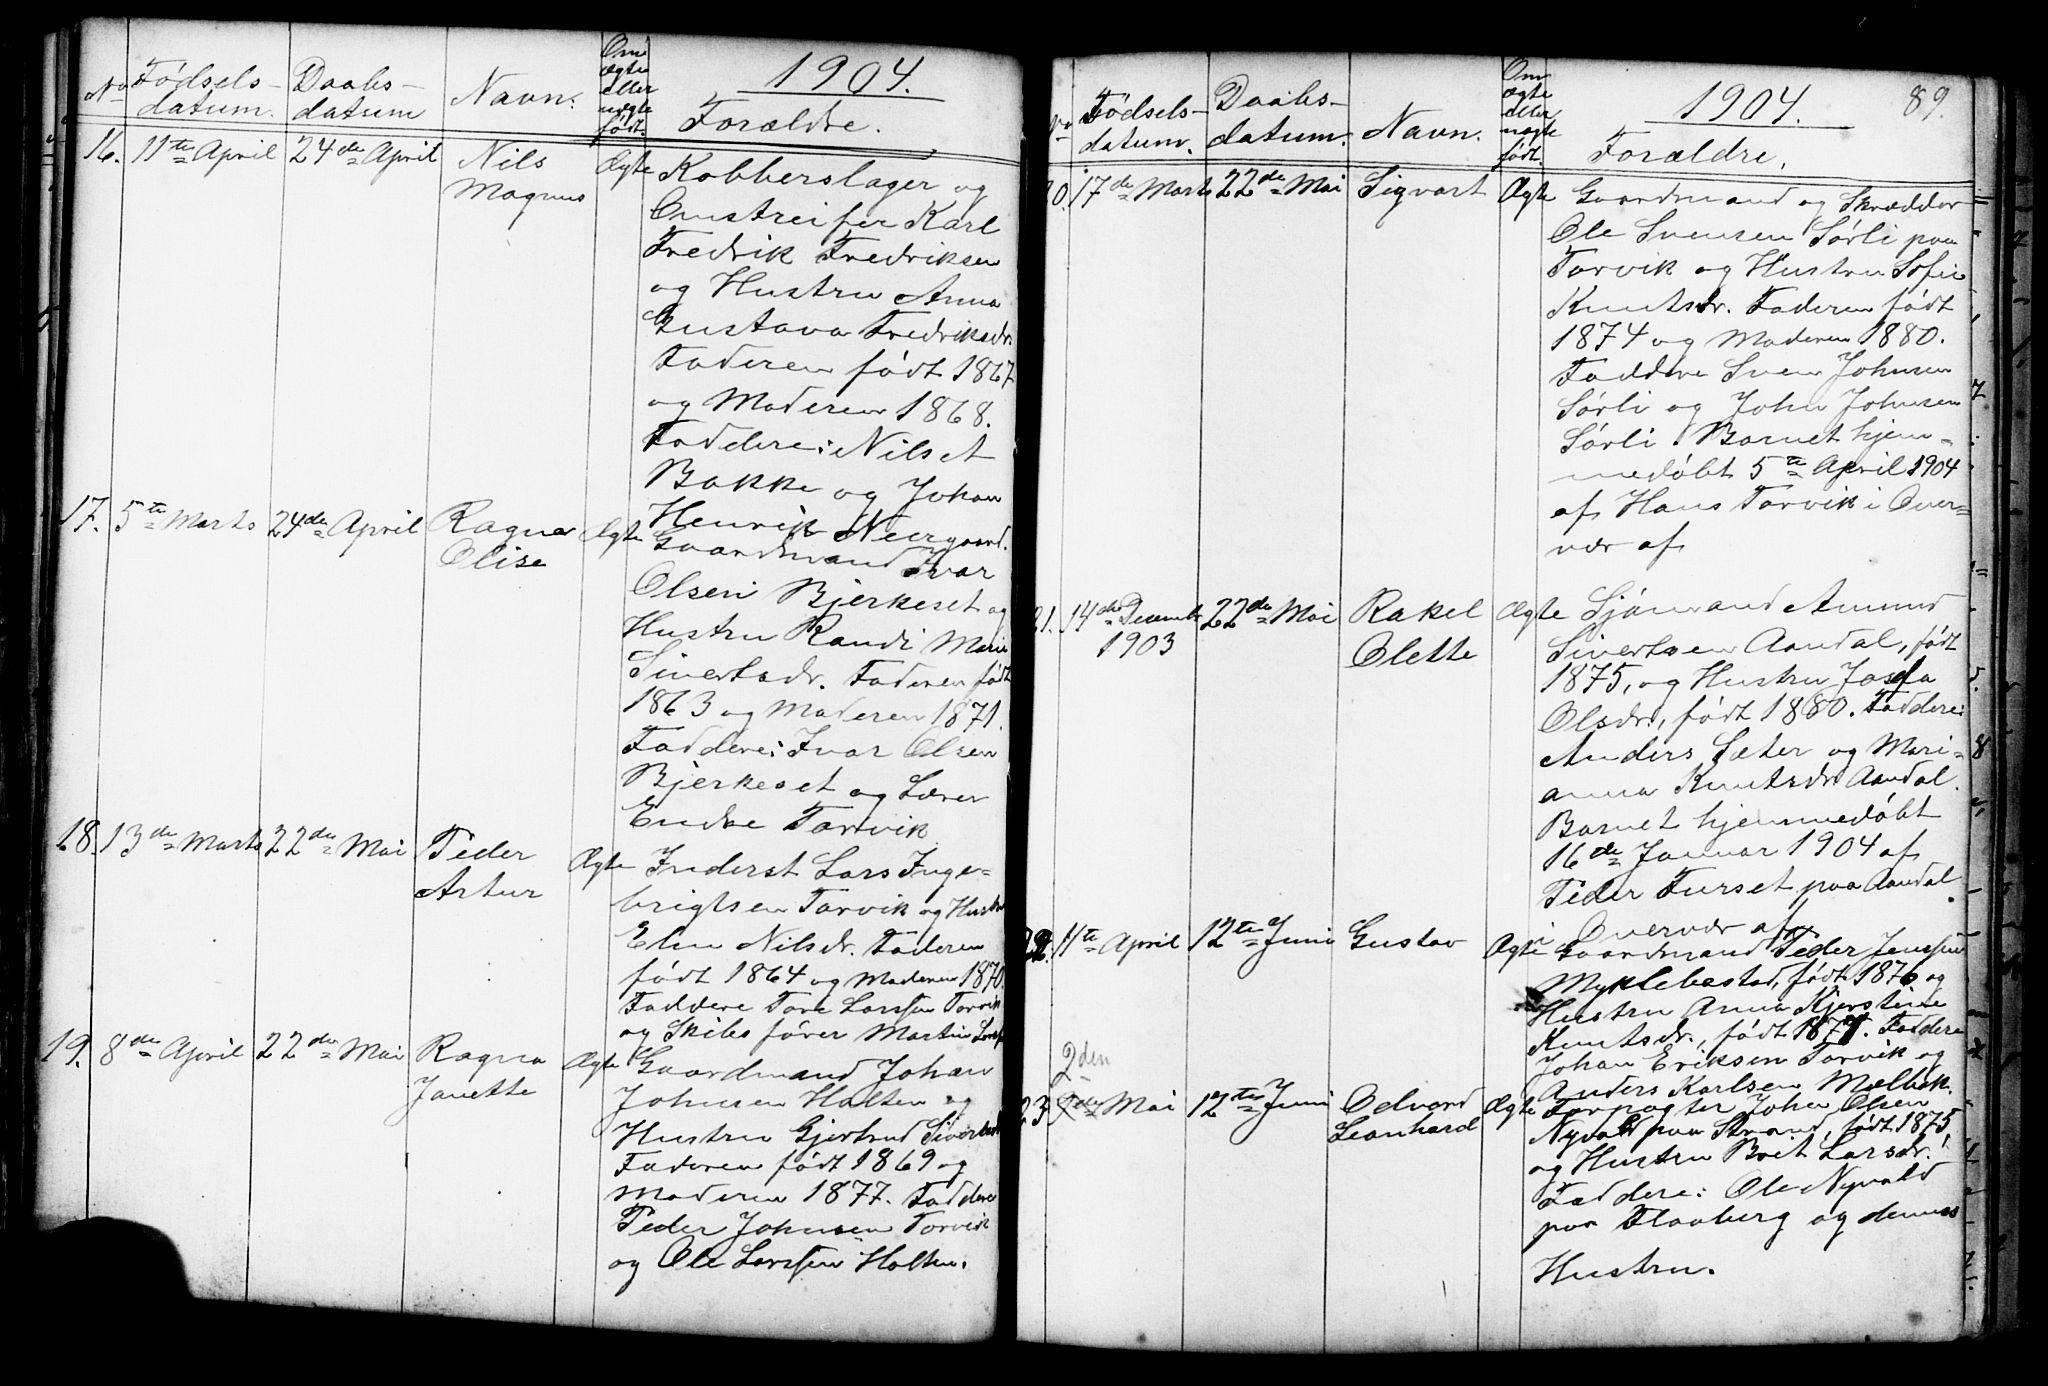 No
Fødsels-
datum.
Daabs-
datum
Navn.
Om
ægte
eller
uægte
født.
1904.
Forældre.
16. 11te April 24de April Nils
Magnus
Ægte
Kobberslager og
Omstreifer Karl
Fredrik Fredriksen
og Hustru Anna
Gustava Fredriksdr.
Faderen født 1867
og Moderen 1868.
Faddere: Nils et
Bakke og Johan
Henrik Neergaard.
17. 5te Marts 24de April Ragna
Olise
Ægte
Gaardmand Ivar
Olsen Bjerkeset og
Hustru Randi Marie
Sivertsdr. Faderen født
1863 og Moderen 1871.
Faddere: Ivar Olsen
Bjerkeset og Lærer
Endre Torvik
18. 13de Marts 22de Mai Peder
Artur
Ægte
Inderst Lars Inge-
brigtsen Torvik og Hustru
Elen Nilsdr. Faderen
født 1864 og Moderen 1870.
Faddere Tore Larssen Torvik
og Skibsfører Martin
19. 8de April 22de Mai Ragna
Janette
Ægte
Gaardmand Johan
Johnsen Holten og
Hustru Gjertrud
Faderen født 1869 og
Moderen 1877. Faddere
Peder Johnsen Torvik
og Ole Larssen Holten.
89.
No
Fødsels-
datum.
Daabs-
datum.
Navn.
Om
ægte
eller
uægte
født.
1904.
Forældre.
20. 17de Marts 22de Mai Sigvart Ægte
Gaardmand og Skrædder
Ole Svensen Sørli paa
Torvik og Hustru Sofie
Knutsdr. Faderen født
1874 og Moderen 1880.
Faddere Sven Johnsen
Sørli og John Johnsen
Sørli. Barnet hjem-
medøbt 5te April 1904
af Hans Torvik i Over-
vær af
21. 14de Decembr
1903
22de Mai Rakel
Olette
Ægte
Sjømand Amund
Sivertsen Aandal, født
1875, og Hustru Josefa
Olsdr., født 1880. Faddere:
Anders Sæter og Mari-
anna Knutsdr Aandal.
Barnet hjemmedøbt
16de Januar 1904 af
Peder Furset paa Aandal
i Overvær af
22. 11te April 12te Juni Gustav Ægte
Gaardmand Peder Jenssen
Myklebostad, født 1876 og
Hustru Anna Kjerstine
Knutsdr., født 1877. Faddere
Johan Eriksen Torvik og
Anders Karlsen Mælbek.
2den
23. Mai 12te Juni Edvard
Leonhard
Ægte
Forpagter John Olsen
Nyvold paa Strand, født 1875
og Hustru Brit Larsdr.
Faddere: Ole Nyvold
paa Flaaberg og dennes
Hustru.